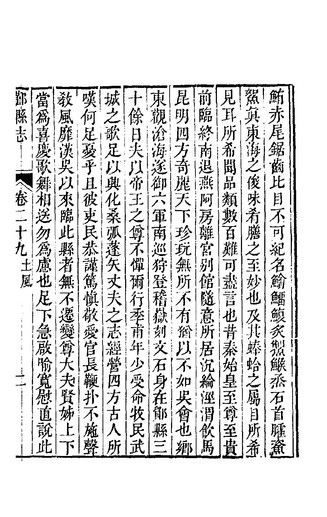 鮪赤尾鋸齒比目不可紀名鱠鰡鰒炙鯸烝石首臛
鮆真東海之俊味肴膳之至妙也及其蜯蛤之屬目所希
見耳所希聞品類數百難可盡言也昔秦始皇至尊至貴
前臨終南退燕阿房離宮别館隨意所居沉綸涇渭飲馬
昆明四方奇麗天下珍玩無所不有猶以不如吳會也鄉
東觀滄海遂御六軍南巡狩登稽嶽刻文石身在鄮縣三
十餘日夫以帝王之尊不憚爾行季甫年少受命牧民武
城之歌足以興化桑弧蓬矢丈夫之志經營四方古人所
嘆何足憂乎且彼吏民恭謙篤慎敬愛官長鞭扑不施聲
教風靡漢吳以來臨此縣者無不遷變尊大夫賢姊上下
當爲喜慶歌舞相送勿爲慮也足下急啟喻寬慰直說此
鄞縣志 卷二十九 土風 二